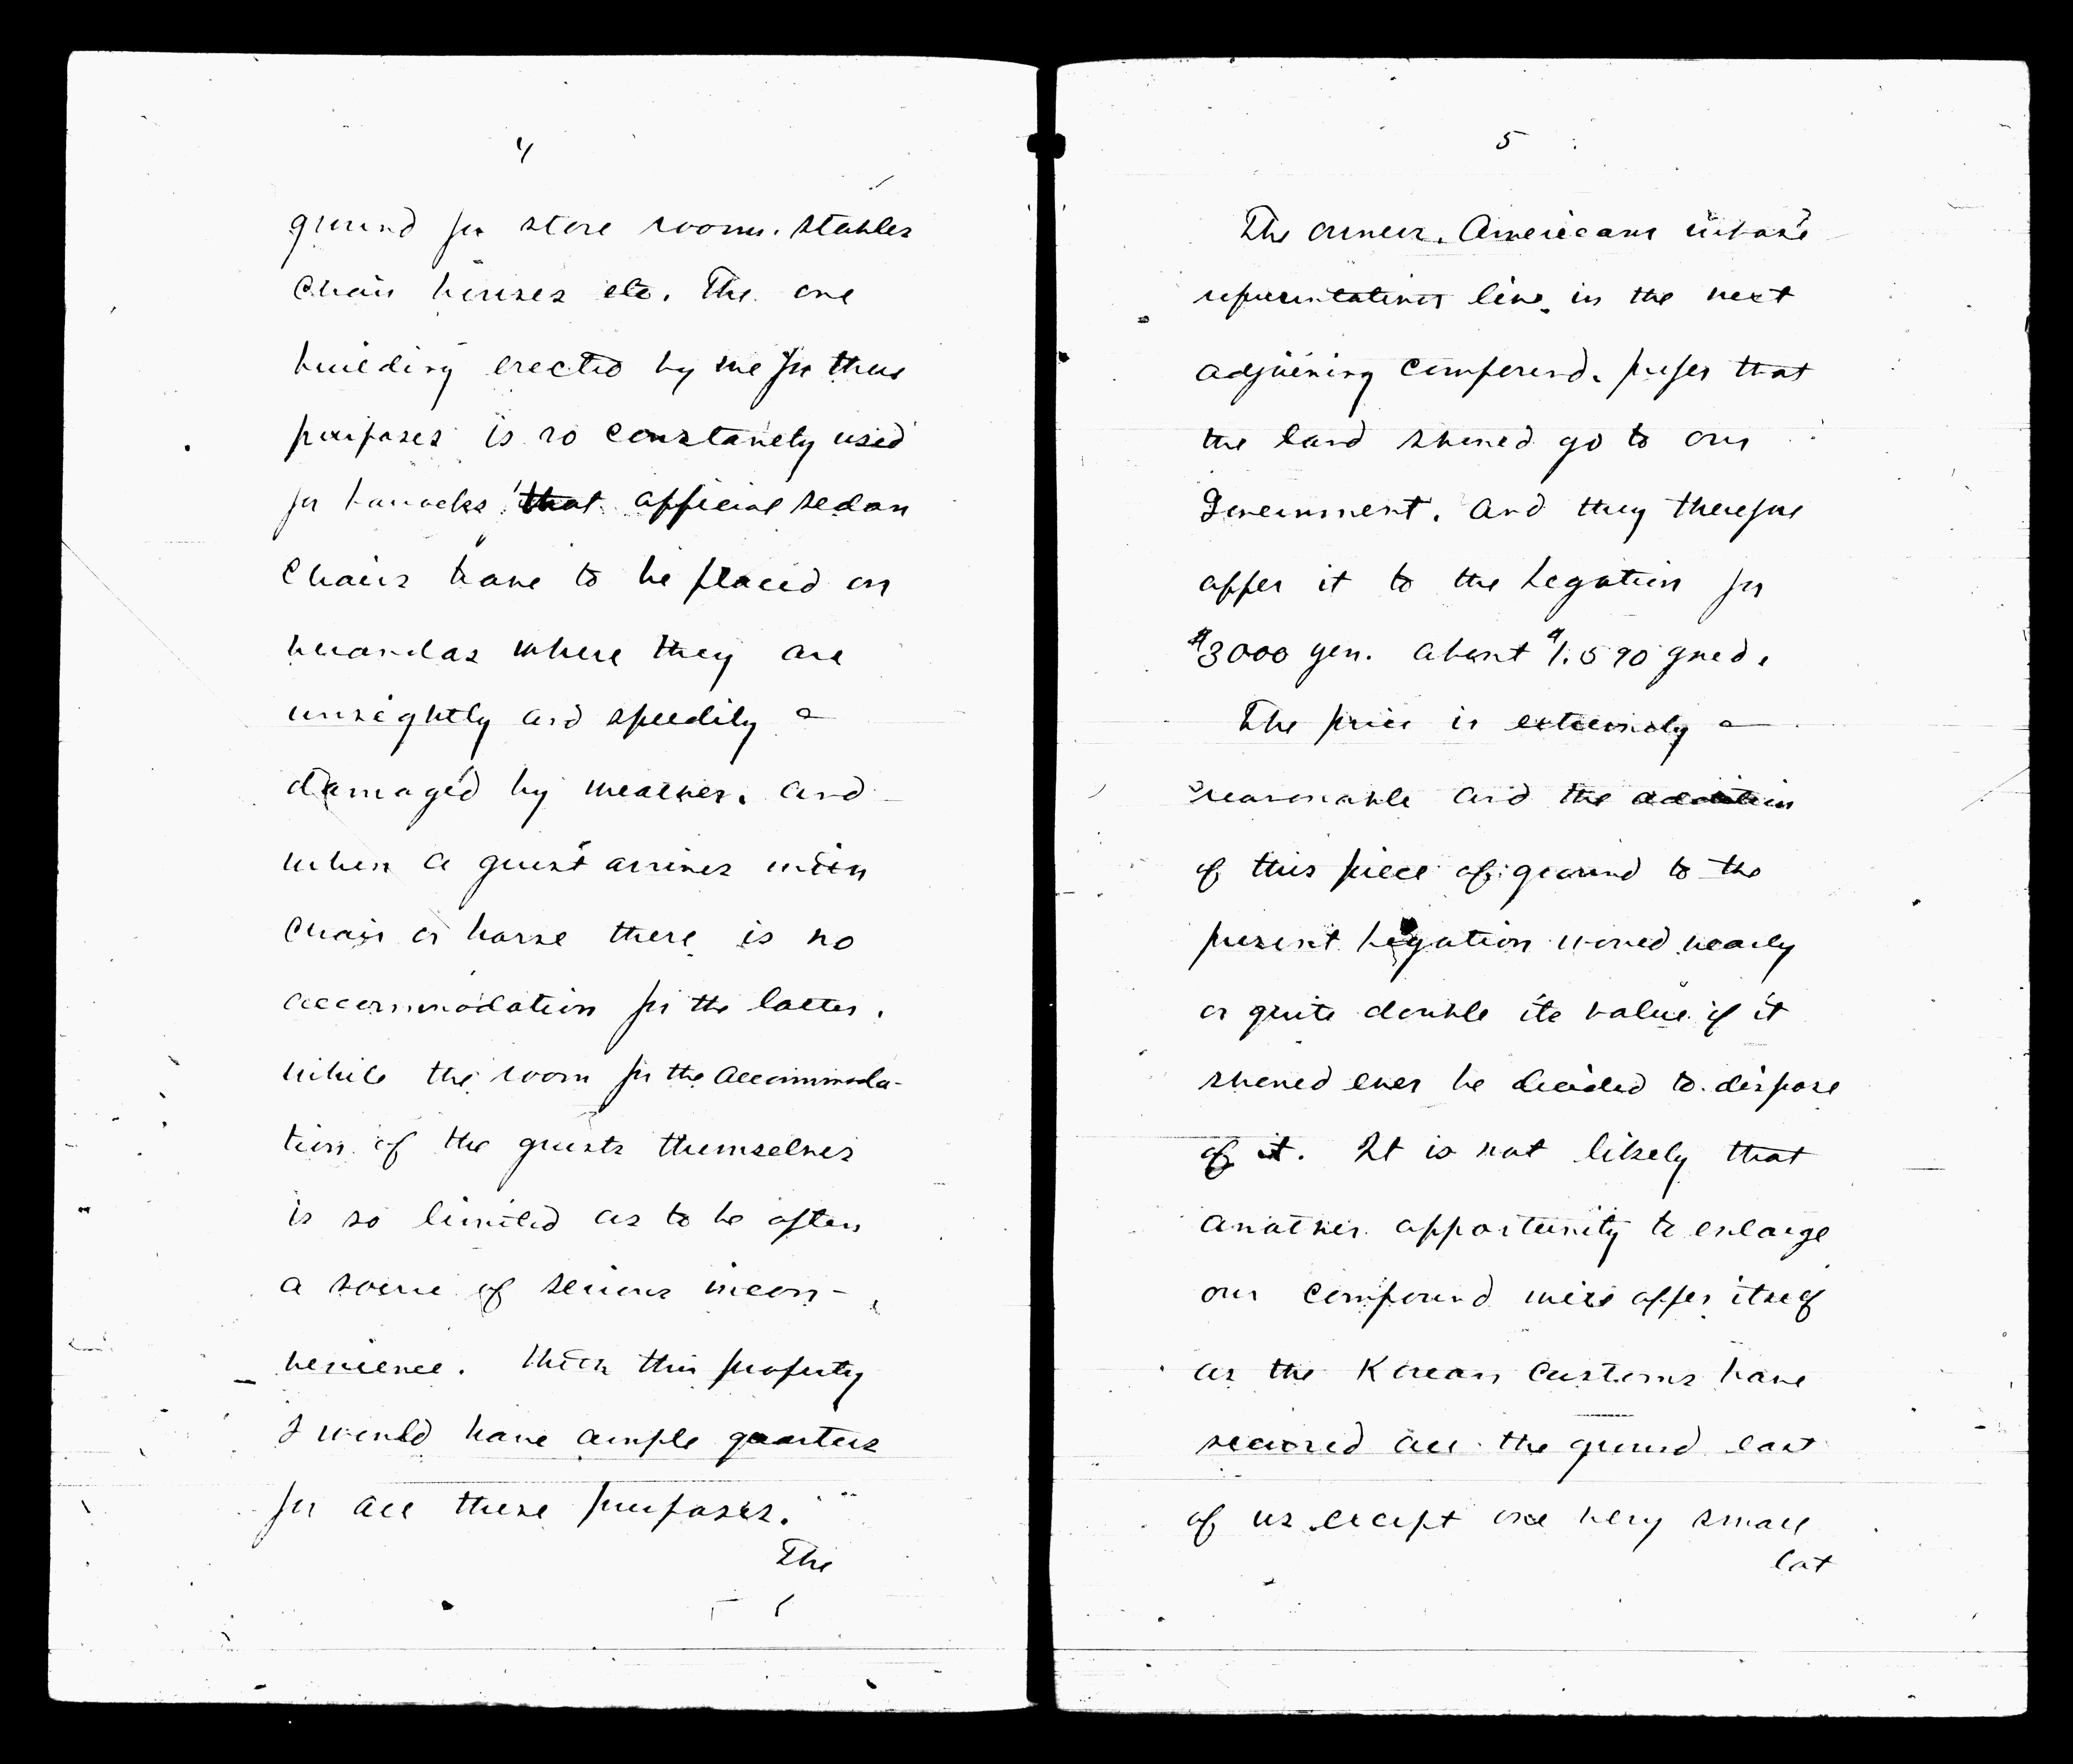 4
ground for store rooms, stables
chair houses etc. The one
building erected by me for these
purposes is so constantly used
for barracks that official sedan
chairs have to be placed on
verandas where they are
unsightly and speedily
damaged by weather, and
when a guest arrives with
chair or horse there is no
accommodation for the latter,
while the room for the accommoda-
tion of the guests themselves
is so limited as to be often
a source of serious incon-
venience. With this property
I would have ample quarters
for all these purposes.
The
5
The owners, Americans whose
representatives live in the next
adjoining compound, prefer that
the land should go to our
Government, and they therefore
offer it to the Legation for
$3000 yen. about $1.590 gold.
The price is extremely
reasonable and the addition
of this piece of ground to the
present Legation would nearly
or quite double its value if it
should ever be decided to dispose
of it. It is not likely that
another opportunity to enlarge
our compound will offer itself
as the Korean Customs have
secured all the ground east
of us except one very small
lot